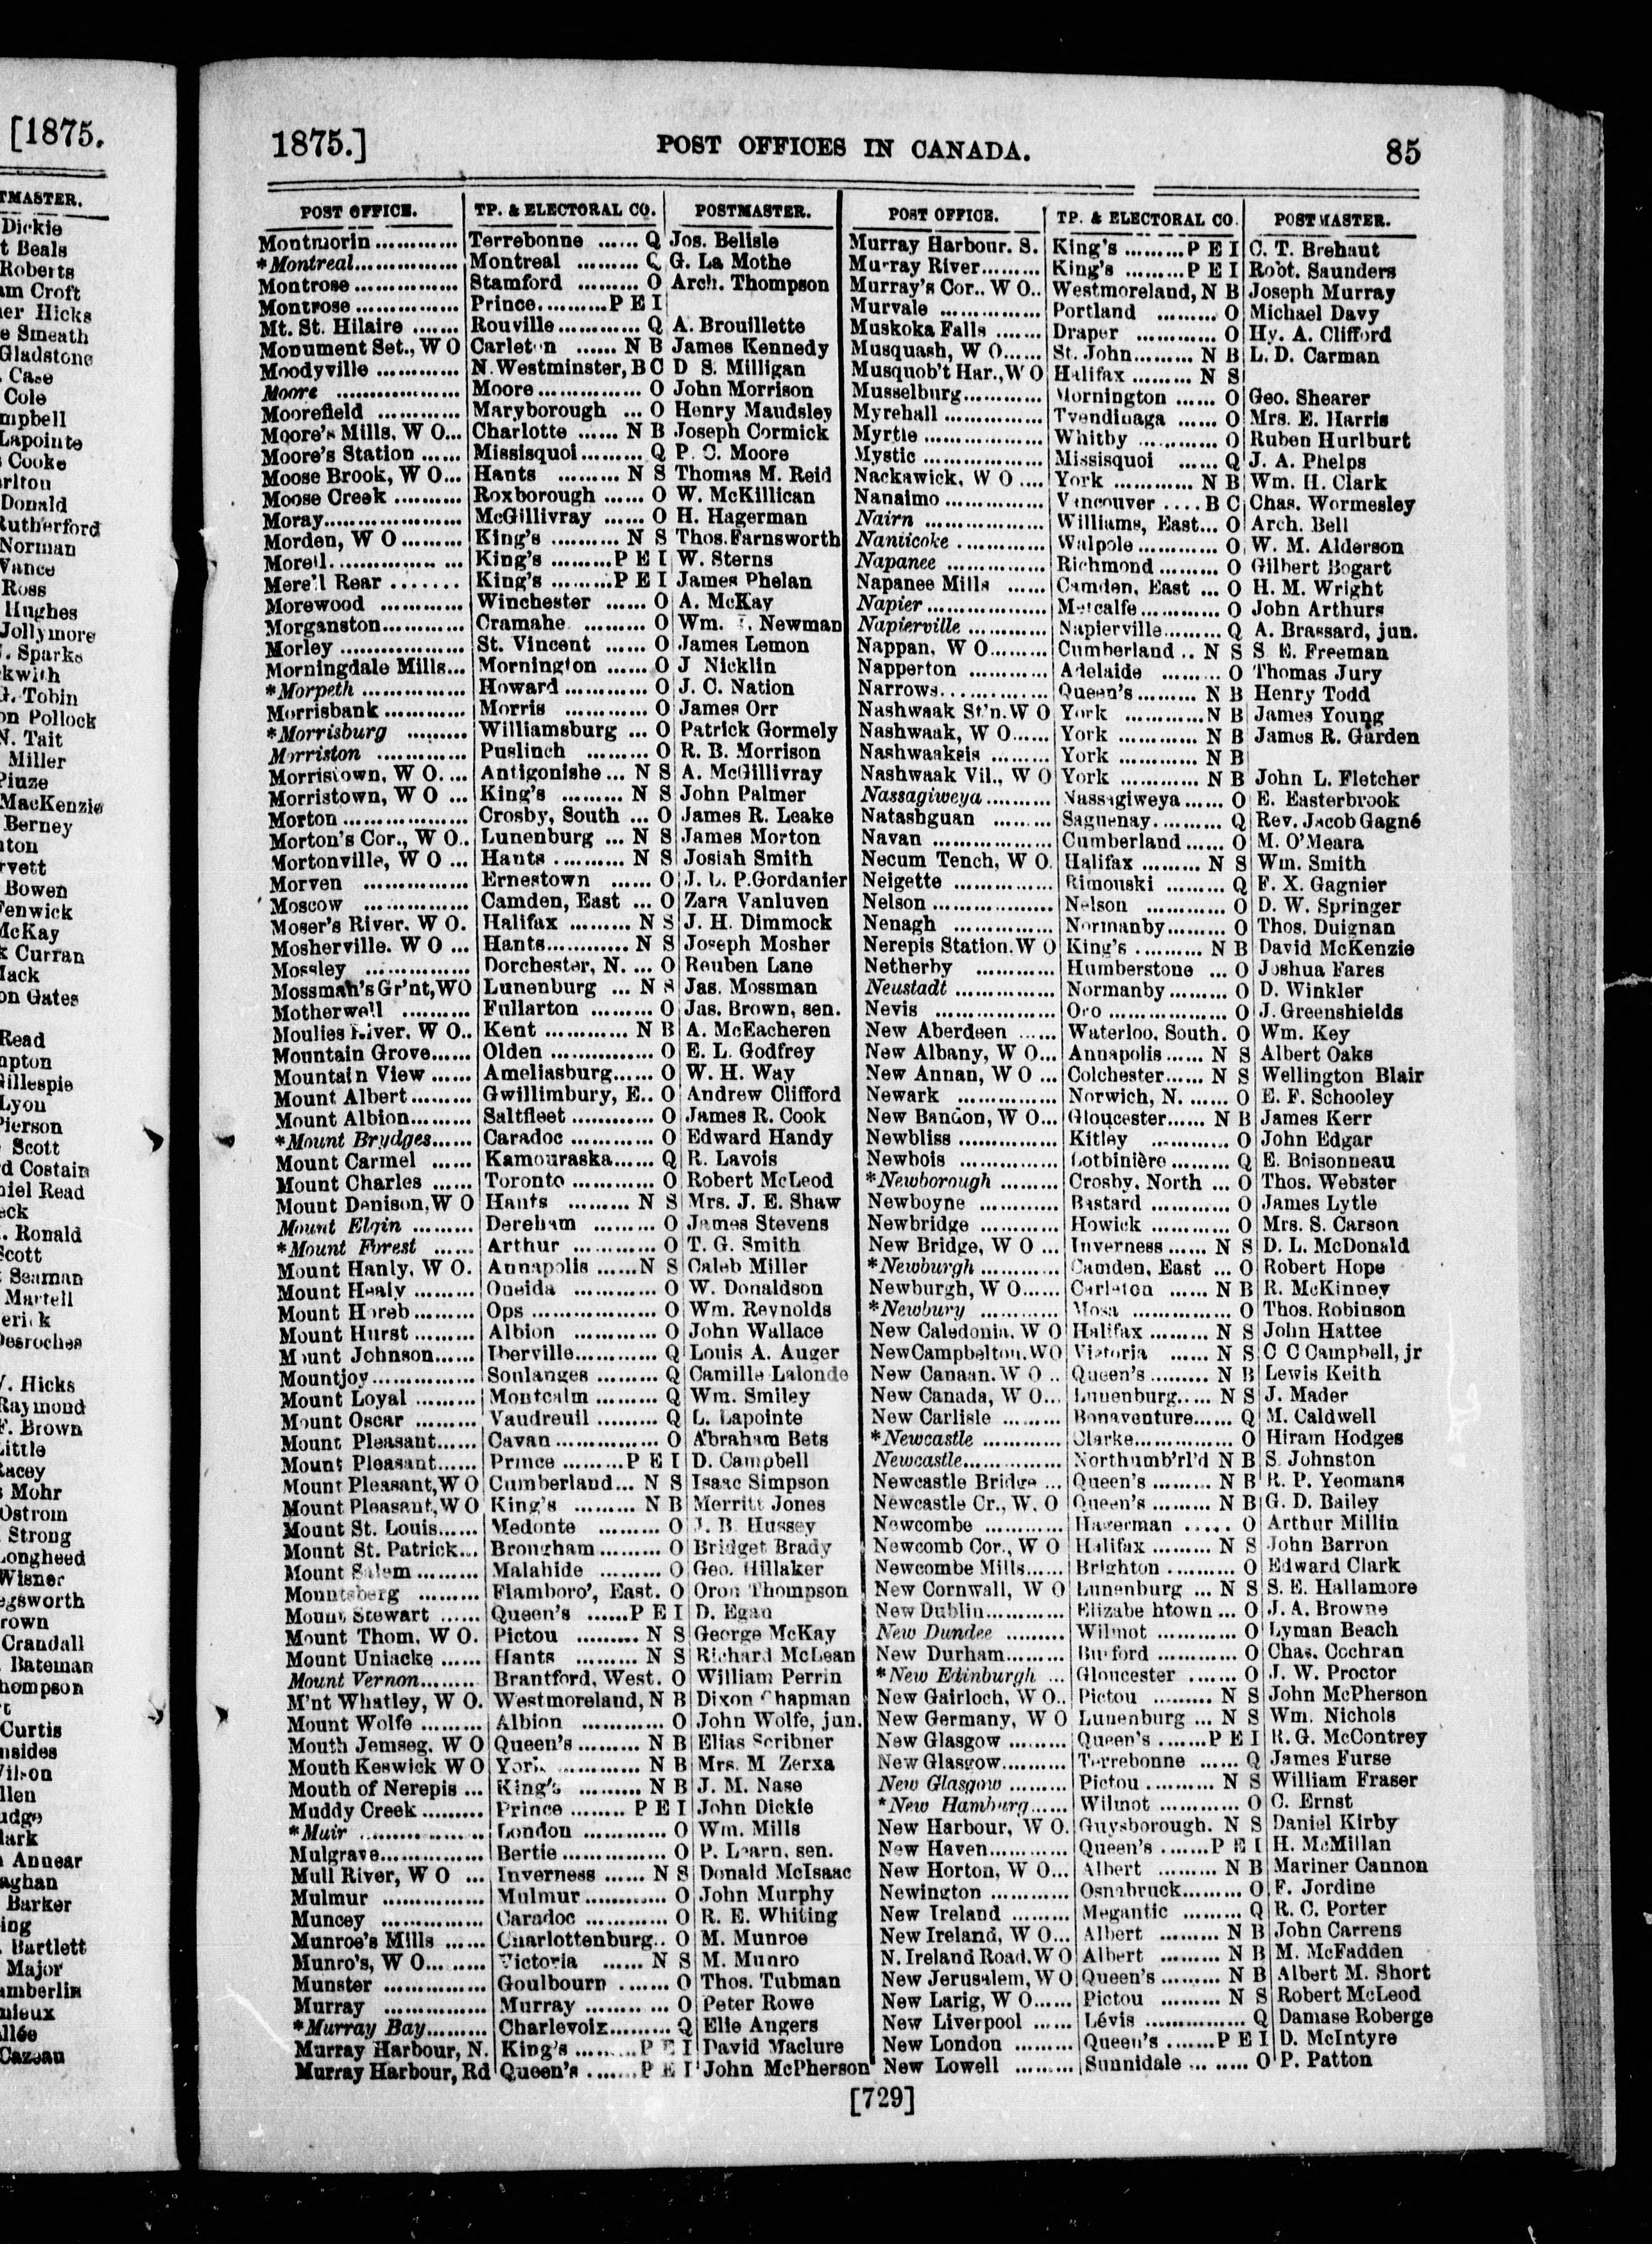 [1875.
TMASTER.
Dickie
t Beals
Roberts
am Croft
ner Hicks
e Smeath
Gladstone
. Case
Cole
mpbell
Lapointe
s Cooke
arlton
Donald
Rutherford
Norman
Vance
Ross
Hughes
Jollymore
. Sparks
kwith
G. Tobin
on Pollock
N. Tait
Miller
Pinze
MacKenzie
Berney
nton
rvett
Bowen
Fenwick
McKay
k Curran
Mack
on Gates
Read
mpton
Gillespie
Lyon
Pierson
Scott
d Costain
niel Read
eck
. Ronald
Scott
t Seaman
Martell
erick
Desroches
. Hicks
Raymond
F. Brown
Little
Lacey
s Mohr
Ostrom
Strong
Longheed
Wisner
egsworth
rown
Crandall
. Bateman
hompson
t
Curtis
nsides
Wilson
llen
udge
lark
Annear
aghan
Barker
ing
. Bartlett
Major
amberlin
nieux
llée
Cazeau
1875.] POST OFFICES IN CANADA. 85
POST OFFICE. TP. & ELECTORAL CO. POSTMASTER.
Montmorin ............ Terrebonne ...... Q Jos. Belisle
*Montreal ............... Montreal ......... Q G. La Mothe
Montrose ............... Stamford ......... O Arch. Thompson
Montrose ............... Prince .......... P E I
Mt. St. Hilaire ....... Rouville ............ Q A. Brouillette
Monument Set., W O Carleton ...... N B James Kennedy
Moodyville ............ N. Westminster, B C D S. Milligan
Moore .................. Moore ............... O John Morrison
Moorefield ............ Maryborough ... O Henry Maudsley
Moore's Mills, W O... Charlotte ...... N B Joseph Cormick
Moore's Station ...... Missisquoi ......... Q P. C. Moore
Moose Brook, W O... Hants ......... N S Thomas M. Reid
Moose Creek .......... Roxborough ...... O W. McKillican
Moray .................... McGillivray ...... O H. Hagerman
Morden, W O ......... King's .......... N S Thos. Farnsworth
Morell .................... King's ......... P E I W. Sterns
Mere'l Rear ....... King's ......... P E I James Phelan
Morewood ............ Winchester ...... O A. McKay
Morganston ............ Cramahe ......... O Wm. Newman
Morley .................. St. Vincent ...... O James Lemon
Morningdale Mills... Mornington ...... O J Nicklin
*Morpeth ............... Howard ............ O J. C. Nation
Morrisbank ............ Morris ............ O James Orr
*Morrisburg ......... Williamsburg ... O Patrick Gormely
Morriston ............. Puslinch ......... O R. B. Morrison
Morristown, W O. ... Antigonishe ... N S A. McGillivray
Morristown, W O ... King's ......... N S John Palmer
Morton .................. Crosby, South ... O James R. Leake
Morton's Cor., W O.. Lunenburg ... N S James Morton
Mortonville, W O ... Hants .......... N S Josiah Smith
Morven ............... Ernestown ...... O J. L. P. Gordanier
Moscow ............... Camden, East ... O Zara Vanluven
Moser's River. W O. Halifax ......... N S J. H. Dimmock
Mosherville. W O ... Hants ............ N S Joseph Mosher
Mossley ............... Dorchester, N. ... O Reuben Lane
Mossman's Gr'nt, WO Lunenburg ... N S Jas. Mossman
Motherwell .......... Fullarton ......... O Jas. Brown, sen.
Moulies River. W O.. Kent ............ N B A. McEacheren
Mountain Grove ...... Olden ............... O E. L. Godfrey
Mountain View ...... Ameliasburg ...... O W. H. Way
Mount Albert ......... Gwillimbury, E.. O Andrew Clifford
Mount Albion ......... Saltfleet ............ O James R. Cook
*Mount Brydges ...... Caradoc ............ O Edward Handy
Mount Carmel ...... Kamouraska ...... Q R. Lavois
Mount Charles ...... Toronto ............ O Robert McLeod
Mount Denison, W O Hants ......... N S Mrs. J. E. Shaw
Mount Elgin ......... Dereham ......... O James Stevens
*Mount Forest ...... Arthur ............ O T. G. Smith
Mount Hanly, W O. Annapolis ...... N S Caleb Miller
Mount Healy ......... Oneida ............ O W. Donaldson
Mount Horeb ......... Ops .................. O Wm. Reynolds
Mount Hurst ......... Albion ............ O John Wallace
Mount Johnson ...... Iberville ............ Q Louis A. Auger
Mountjoy ............... Soulanges ......... Q Camille Lalonde
Mount Loyal ......... Montcalm ......... Q Wm. Smiley
Mount Oscar ......... Vaudreuil ......... Q L. Lapointe
Mount Pleasant ...... Cavan ............... O Abraham Bets
Mount Pleasant ...... Prince ......... P E I D. Campbell
Mount Pleasant, W O Cumberland ... N S Isaac Simpson
Mount Pleasant, W O King's ......... N B Merritt Jones
Mount St. Louis ...... Medonte ......... O J. B. Hussey
Mount St. Patrick ... Brougham ......... O Bridget Brady
Mount Salem ......... Malahide ......... O Geo. Hillaker
Mountsberg ......... Flamboro', East. O Oron Thompson
Mount Stewart ...... Queen's ...... P E I D. Egan
Mount Thom, W O. Pictou ......... N S George McKay
Mount Uniacke ...... Hants ......... N S Richard McLean
Mount Vernon ........ Brantford, West. O William Perrin
M'nt Whatley, W O. Westmoreland, N B Dixon Chapman
Mount Wolfe ......... Albion ............ O John Wolfe, jun.
Mouth Jemseg. W O Queen's ......... N B Elias Scribner
Mouth Keswick W O York ............ N B Mrs. M Zerxa
Mouth of Nerepis ... King's ......... N B J. M. Nase
Muddy Creek ......... Prince ........ P E I John Dickie
*Muir .................. London ............ O Wm. Mills
Mulgrave ............... Bertie ............... O P. Learn, sen.
Mull River, W O ... Inverness ...... N S Donald McIsaac
Mulmur ............... Mulmur ............ O John Murphy
Muncey ............... Caradoc ............ O R. E. Whiting
Munroe's Mills ...... Charlottenburg.. O M. Munroe
Munro's, W O ......... Victoria ...... N S M. Munro
Munster ............... Goulbourn ....... O Thos. Tubman
Murray ............... Murray ............ O Peter Rowe
*Murray Bay ......... Charlevoix ......... Q Elie Angers
Murray Harbour, N. King's ......... P E I David Maclure
Murray Harbour, Rd Queen's ....... P E I John McPherson
POST OFFICE. TP. & ELECTORAL CO. POSTMASTER.
Murray Harbour. S. King's ......... P E I C. T. Brehaut
Murray River ......... King's ......... P E I Robt. Saunders
Murray's Cor.. W O.. Westmoreland, N B Joseph Murray
Murvale ............... Portland ......... O Michael Davy
Muskoka Falls ....... Draper ............ O Hy. A. Clifford
Musquash, W O ...... St. John ......... N B L. D. Carman
Musquob't Har., W O Halifax ......... N S
Musselburg ............ Mornington ...... O Geo. Shearer
Myrehall ............... Tyendinaga ...... O Mrs. E. Harris
Myrtle .................. Whitby ............ O Ruben Hurlburt
Mystic .................. Missisquoi ...... Q J. A. Phelps
Nackawick, W O .... York ............ N B Wm. H. Clark
Nanaimo ............... Vancouver .... B C Chas. Wormesley
Nairn .................. Williams, East ... O Arch. Bell
Nanticoke .............. Walpole ............ O W. M. Alderson
Napanee ............... Richmond ......... O Gilbert Bogart
Napanee Mills ...... Camden, East ... O H. M. Wright
Napier .................. Metcalfe ............ O John Arthurs
Napierville ............ Napierville ......... Q A. Brassard, jun.
Nappan, W O ......... Cumberland .. N S S E. Freeman
Napperton ............ Adelaide ......... O Thomas Jury
Narrows ............... Queen's ......... N B Henry Todd
Nashwaak St'n. W O York ............ N B James Young
Nashwaak, W O ...... York ............ N B James R. Garden
Nashwaaksis ......... York ............ N B
Nashwaak Vil., W O York ............ N B John L. Fletcher
Nassagiweya .......... Nassagiweya ...... O E. Easterbrook
Natashguan ......... Saguenay .......... Q Rev. Jacob Gagné
Navan .................. Cumberland ...... O M. O'Meara
Necum Tench, W O. Halifax ......... N S Wm. Smith
Neigette ............... Rimouski ......... Q F. X. Gagnier
Nelson .................. Nelson ............ O D. W. Springer
Nenagh ............... Normanby ......... O Thos. Duignan
Nerepis Station. W O King's .......... N B David McKenzie
Netherby ............ Humberstone ... O Joshua Fares
Neustadt ............... Normanby ......... O D. Winkler
Nevis .................. Oro .................. O J. Greenshields
New Aberdeen ...... Waterloo, South. O Wm. Key
New Albany, W O... Annapolis ...... N S Albert Oaks
New Annan, W O ... Colchester ...... N S Wellington Blair
Newark ............... Norwich, N. ...... O E. F. Schooley
New Bandon, W O... Gloucester ...... N B James Kerr
Newbliss ............... Kitley ............ O John Edgar
Newbois ............... Lotbinière ......... Q E. Boisonneau
*Newborough ......... Crosby, North ... O Thos. Webster
Newboyne ............ Bastard ............ O James Lytle
Newbridge ............ Howick ............ O Mrs. S. Carson
New Bridge, W O ... Inverness ...... N S D. L. McDonald
*Newburgh ............ Camden, East ... O Robert Hope
Newburgh, W O ...... Carleton ...... N B R. McKinney
*Newbury ............ Mosa ............... O Thos. Robinson
New Caledonia, W O Halifax ......... N S John Hattee
New Campbelton, WO Victoria ...... N S C C Campbell, jr
New Canaan. W O .. Queen's ......... N B Lewis Keith
New Canada, W O... Lunenburg ..... N S J. Mader
New Carlisle ......... Bonaventure ...... Q M. Caldwell
*Newcastle ............ Clarke ............... O Hiram Hodges
Newcastle ............... Northumb'rl'd N B S. Johnston
Newcastle Bridge ... Queen's ......... N B R. P. Yeomans
Newcastle Cr., W. O Queen's ......... N B G. D. Bailey
Newcombe ............ Hagerman ...... O Arthur Millin
Newcomb Cor., W O Halifax ......... N S John Barron
Newcombe Mills ...... Brighton .......... O Edward Clark
New Cornwall, W O Lunenburg ... N S S. E. Hallamore
New Dublin ............ Elizabe htown ... O J. A. Browne
New Dundee ......... Wilmot ............ O Lyman Beach
New Durham ......... Burford ............ O Chas. Cochran
*New Edinburgh ... Gloucester ....... O J. W. Proctor
New Gairloch, W O.. Pictou ......... N S John McPherson
New Germany, W O Lunenburg ... N S Wm. Nichols
New Glasgow ......... Queen's ....... P E I R. G. McContrey
New Glasgow .......... Terrebonne ...... Q James Furse
New Glasgow ......... Pictou .......... N S William Fraser
*New Hamburg ...... Wilmot ............ O C. Ernst
New Harbour, W O. Guysborough. N S Daniel Kirby
New Haven ............ Queen's ....... P E I H. McMillan
New Horton, W O... Albert ......... N B Mariner Cannon
Newington ............ Osnabruck ......... O F. Jordine
New Ireland ......... Megantic ......... Q R. C. Porter
New Ireland, W O... Albert ......... N B John Carrens
N. Ireland Road. W O Albert ......... N B M. McFadden
New Jerusalem, W O Queen's ......... N B Albert M. Short
New Larig, W O ...... Pictou ......... N S Robert McLeod
New Liverpool ...... Lévis ............... Q Damase Roberge
New London ......... Queen's ....... P E I D. McIntyre
New Lowell ......... Sunnidale ......... O P. Patton
[729]